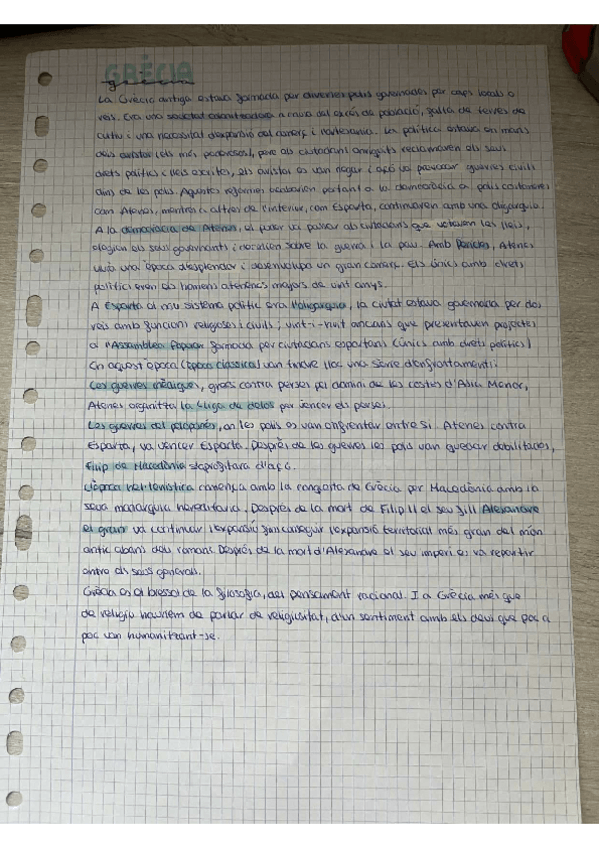 GRÈCIA
grècia
La Grècia antiga estava formada per diverses polis governades per caps locals o
reis. Era una societat esclavitzadora a causa del excés de població, falta de terres de
cultiu i una necessitat d'expansió del comerç i . La política estava en mans
dels aristòi (els més poderosos), però els ciutadans enriquits reclamaven els seus
drets polítics i lleis escrites, els aristòi es van negar i açò va provocar guerres civils
dins de les polis. Aquestes reformes acabarien portant a la democràcia a polis costaneres
com Atenes, mentre a altres de l'interior, com Esparta, continuaren amb una oligarquia.
A la democràcia de Atenes, el poder va passar als ciutadans que votaven les lleis,
elegien els seus governants i decidien sobre la guerra i la pau. Amb Pericles, Atenes
viu una època d'esplendor i desenvolupa un gran comerç. Els únics amb drets
polítics eren els homens atenencs majors de vint anys.
A Esparta el seu sistema polític era l'oligarquia, la ciutat estava governada per dos
reis amb funcions religioses i civils; vint-i-huit ancians que presentaven projectes
a l'Assamblea Popular formada per ciutadans espartans (únics amb drets polítics)
En aquest època (època clàssica) van tindre lloc una sèrie d'enfrontaments:
Les guerres mèdiques, grecs contra perses pel domini de les costes d'Àsia Menor,
Atenes organitza la Lliga de Delos per vencer els perses.
Les guerres del peloponès, on les polis es van enfrentar entre si. Atenes contra
Esparta, va vencer Esparta. Desprès de les guerres les polis van quedar debilitades,
Filip de Macedònia s'aprofitarà d'açò.
L'època hel·lenística comença amb la conquista de Grècia per Macedònia amb la
seva monarquia hereditària. Desprès de la mort de Filip II el seu fill Alexandre
el gran va continuar l'expansió fins conseguir l'expansió territorial més gran del món
antic abans dels romans. Desprès de la mort d'Alexandre el seu imperi es va repartir
entre els seus generals.
Grècia es el bressol de la filosofia, del pensament racional. I a Grècia més que
de religió hauríem de parlar de religiositat, d'un sentiment amb els deus que poc a
poc van humanitzant-se.